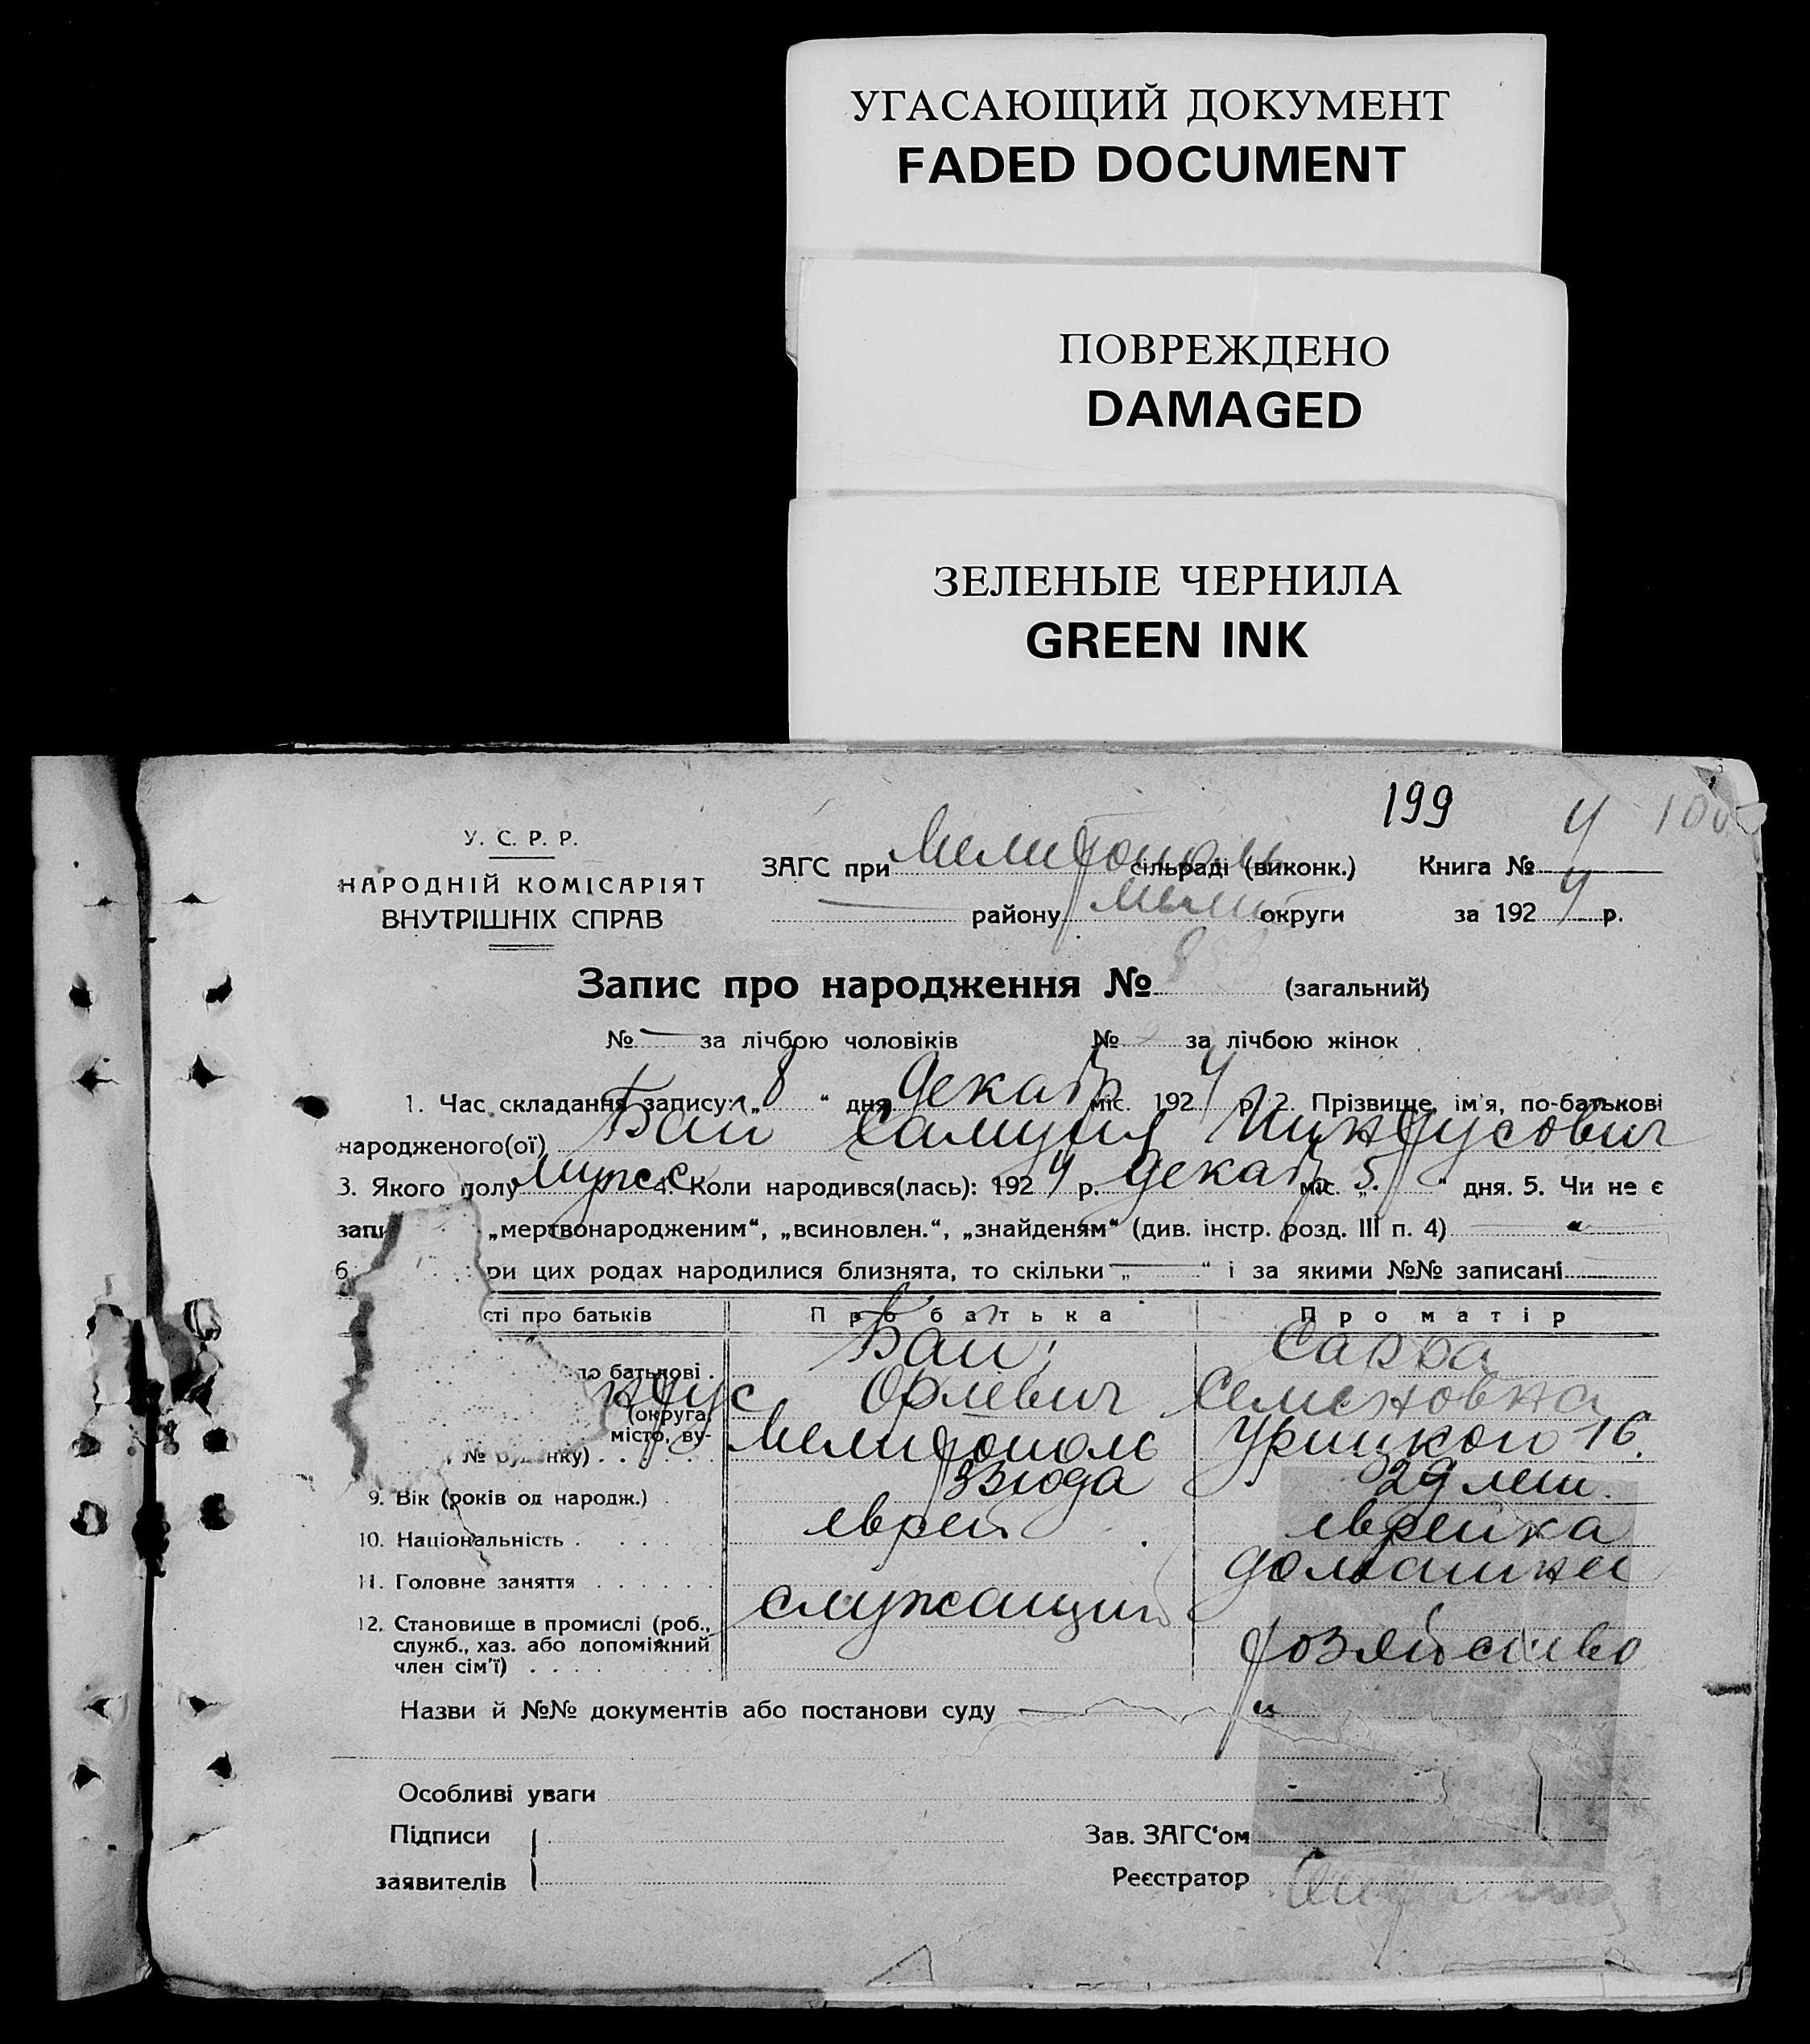 УГАСАЮЩИЙ ДОКУМЕНТ
FADED DOCUMENT
ПОВРЕЖДЕНО
DAMAGED
ЗЕЛЕНЫЕ ЧЕРНИЛА
GREEN INK
199 4
У. С. Р. Р.
НАРОДНІЙ КОМІСАРІЯТ
ВНУТРІШНІХ СПРАВ
ЗАГС при Мелитополь сільраді (виконк.) Книга №
району округи за 192 4 р.
Запис про народження № (загальний)
№ — за лічбою чоловіків № за лічбою жінок
1. Час складання запису: „ 8 “ дня декабр міс. 192 4 р. 2. Прізвище, ім'я, по-батькові
народженого(ої) Бан Самуил Пинхусович
3. Якого полу мужс 4. Коли народився(лась): 192 4 р. декабр міс. „ 5 “ дня. 5. Чи не є
запи „мертвонародженим“, „всиновлен.“, „знайденям“ (див. інстр. розд. III п. 4) — „ —
6. ри цих родах народилися близнята, то скільки „ — “ і за якими №№ записані —
сті про батьків Про батька Про матір
Бан Сарра
по батькові
нхус Орлевич Семеновна
(округа,
місто, ву-
№ будинку) Мелитополь Урицкого 16.
9. Вік (років од народж.) 33 года 29 лет.
10. Національність еврей еврейка
11. Головне заняття служащий домашнее
12. Становище в промислі (роб.,
служб., хаз. або допоміжний
член сім'ї) хозяйство
Назви й №№ документів або постанови суду — „
Особливі уваги
Підписи
заявителів
Зав. ЗАГС'ом
Реєстратор